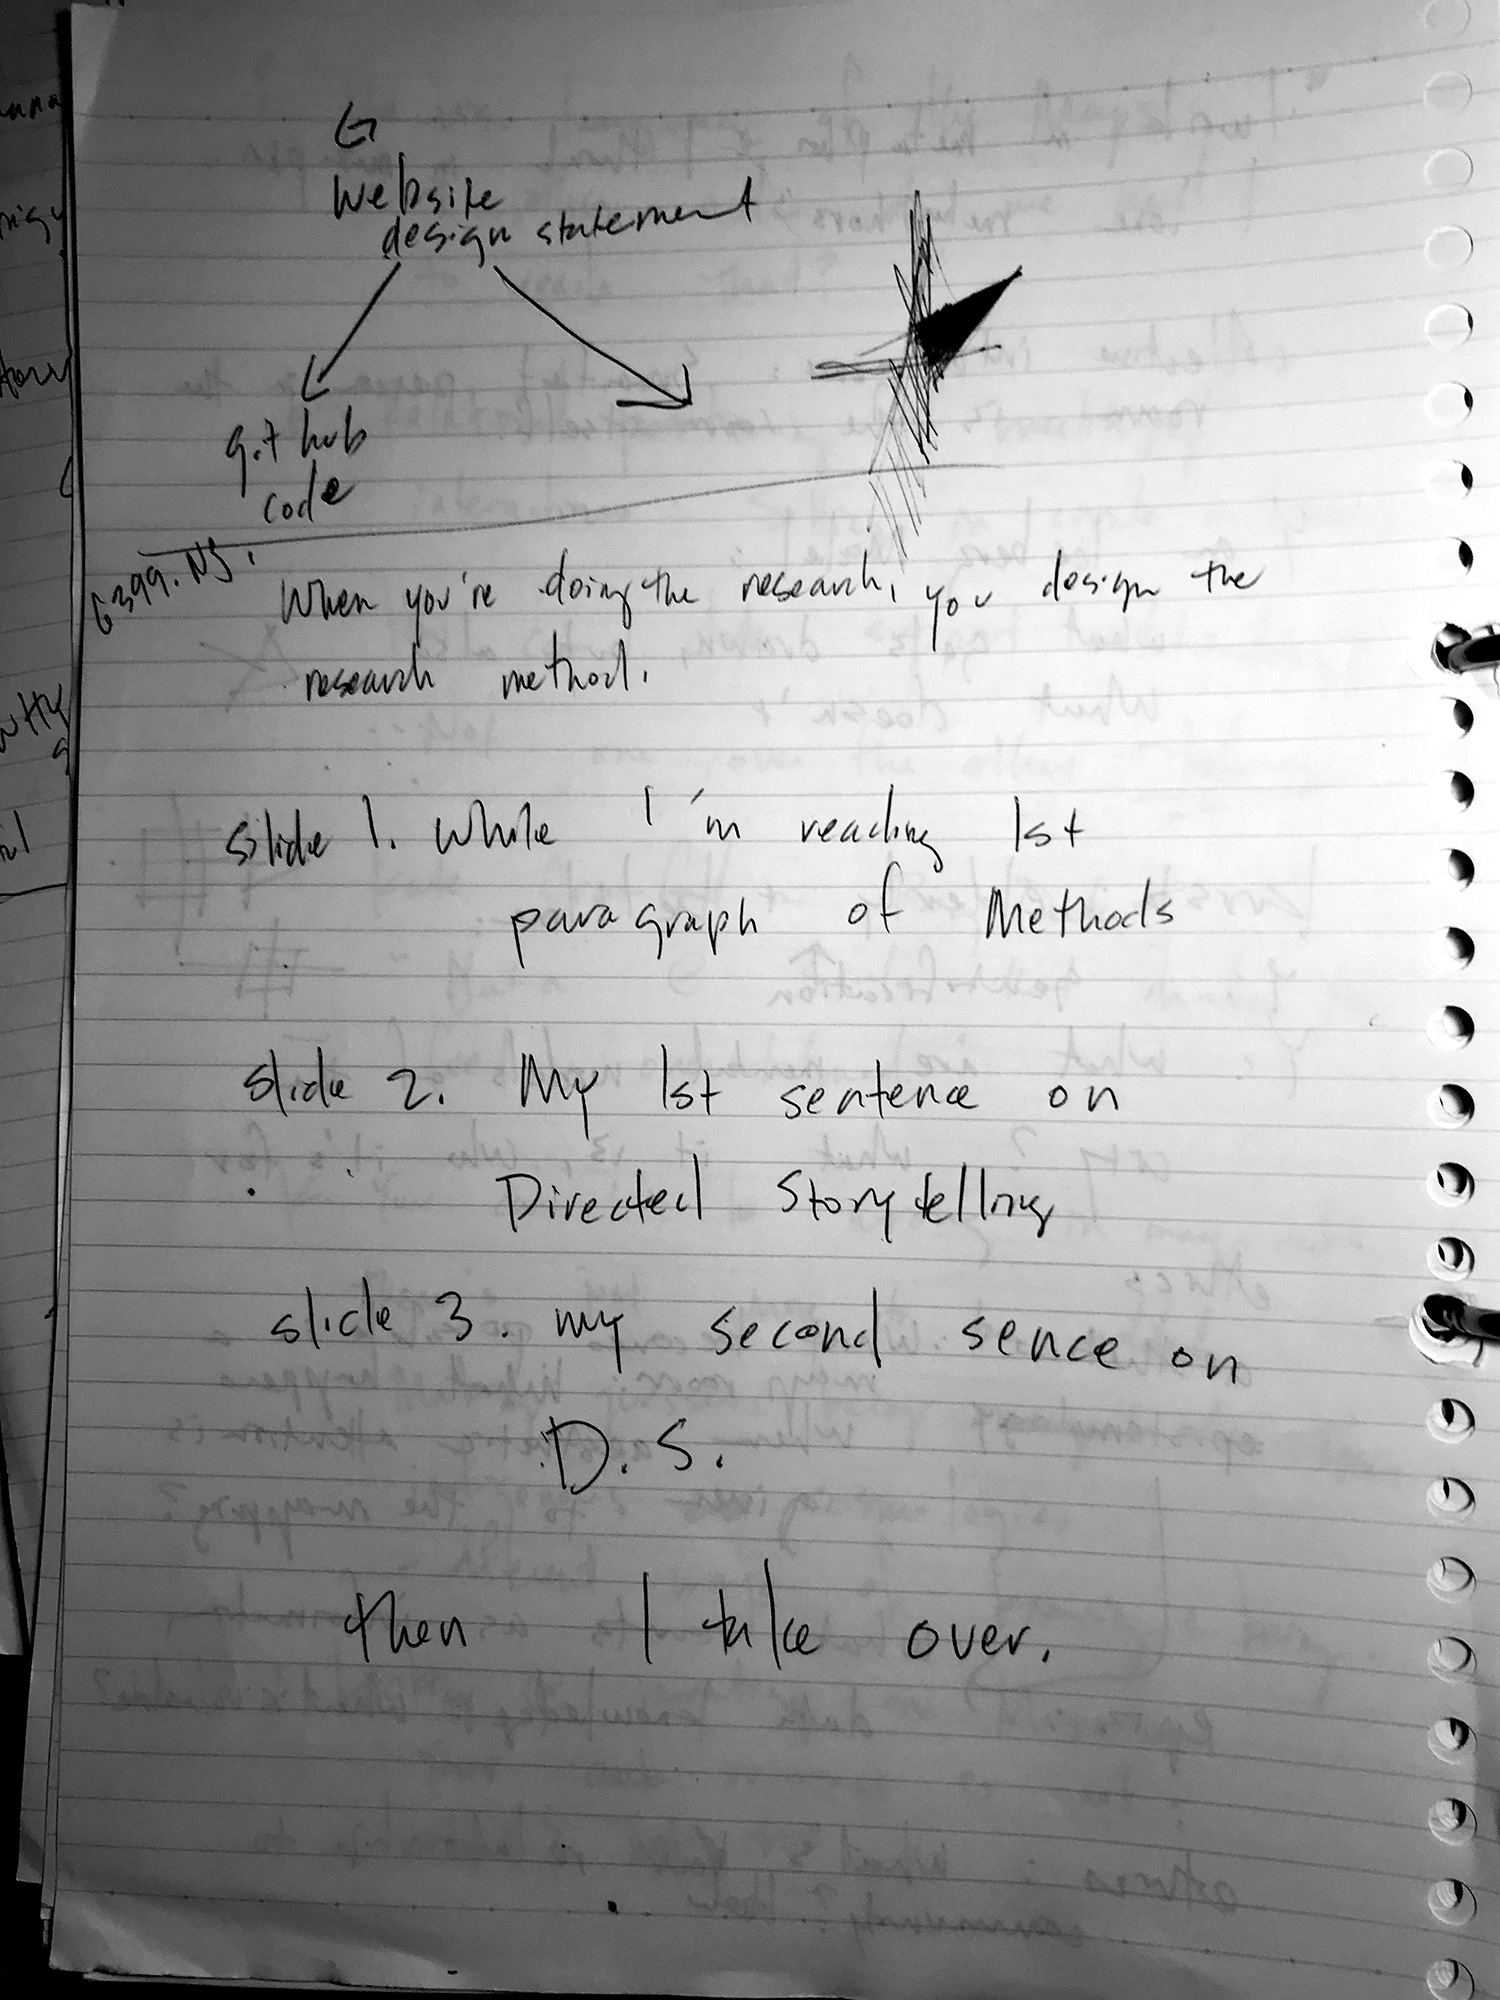 G
Website
design statement
git hub
code
When you're doing the research, you design the
research method.
slide 1. While I'm reading 1st
paragraph of Methods
slide 2. My 1st sentence on
Directed Storytelling
slide 3. my second sence on
D.S.
then I take over.